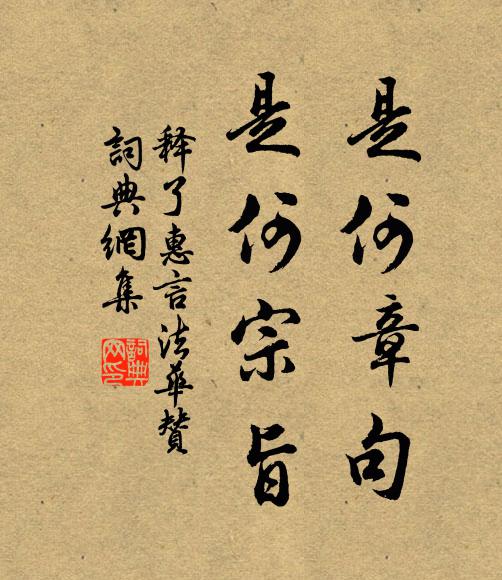 是何章句
是何宗旨
释了惠言法華贊
詞典網集
詞典網印